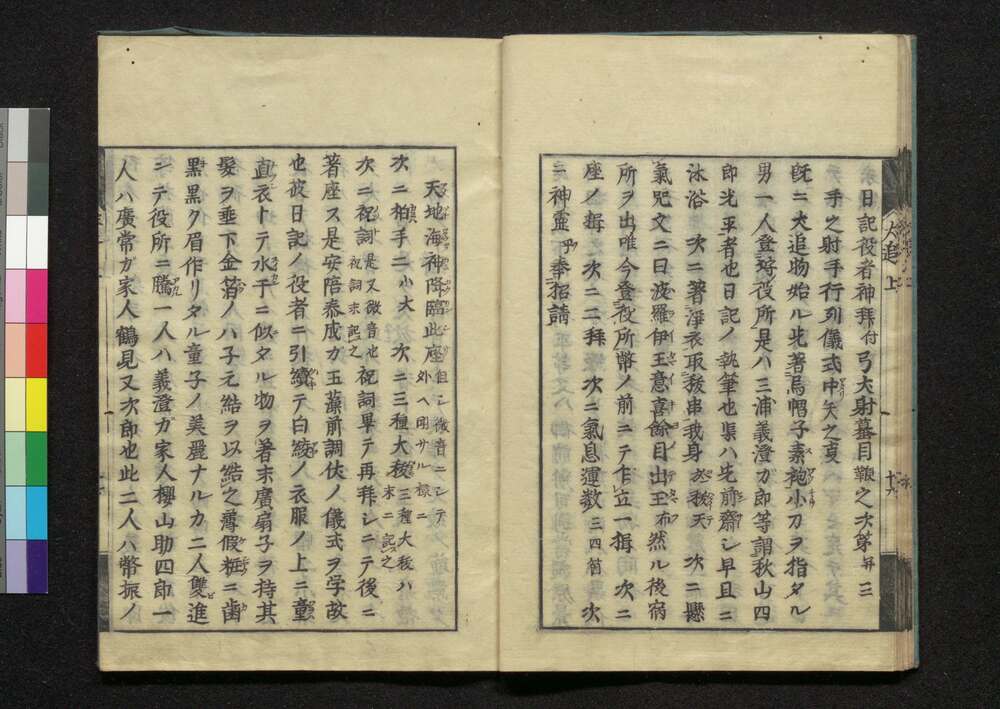 日記役者神拜付弓大射蟇目鞭之次第并三
手之射手行列儀式中矢之夏
旣ニ犬追物始ル先著烏帽子素袍小刀ヲ指タル
男一人登役所是ハ三浦義澄カ郎等謂秋山四
郎光平者也日記ノ執筆也渠ハ先前齋シ早旦ニ
沐浴 次ニ著淨衣取祓串我身 次ニ懸
氣咒文ニ曰波羅伊玉意喜餘目出玉 然ル後宿
所ヲ出唯今登役所幣ノ前ニテ乍立一揖 次ニ
座ノ揖 次ニ二拜 次ニ氣息運数 三四 次
神靈乎奉招請
犬追 上
十六
天地海神降臨此座 但シ微音ニシテ外ヘ聞サル樣ニ
次ニ柏手二小大 次ニ三種大祓 三種大祓ハ末ニ記之
次ニ祝詞 是又微音也祝詞末記之 祝詞畢テ再拜シニテ後ニ
著座ス是安陪泰成カ玉藻前調伏ノ儀式ヲ学故
也彼日記ノ役者ニ引續テ白綾ノ衣服ノ上ニ童
直衣トテ水干ニ似タル物ヲ著末廣扇子ヲ持其
髮ヲ垂下金箔ノハ子元結ヲ以結之薄假粧ニ歯
黒黒ク眉作リタル童子ノ美麗ナルカ二人雙進
ンテ役所ニ騰一人ハ義澄カ家人櫻山助四郎一
人ハ廣常カ家人鶴見又次郎也此二人ハ幣振ノ